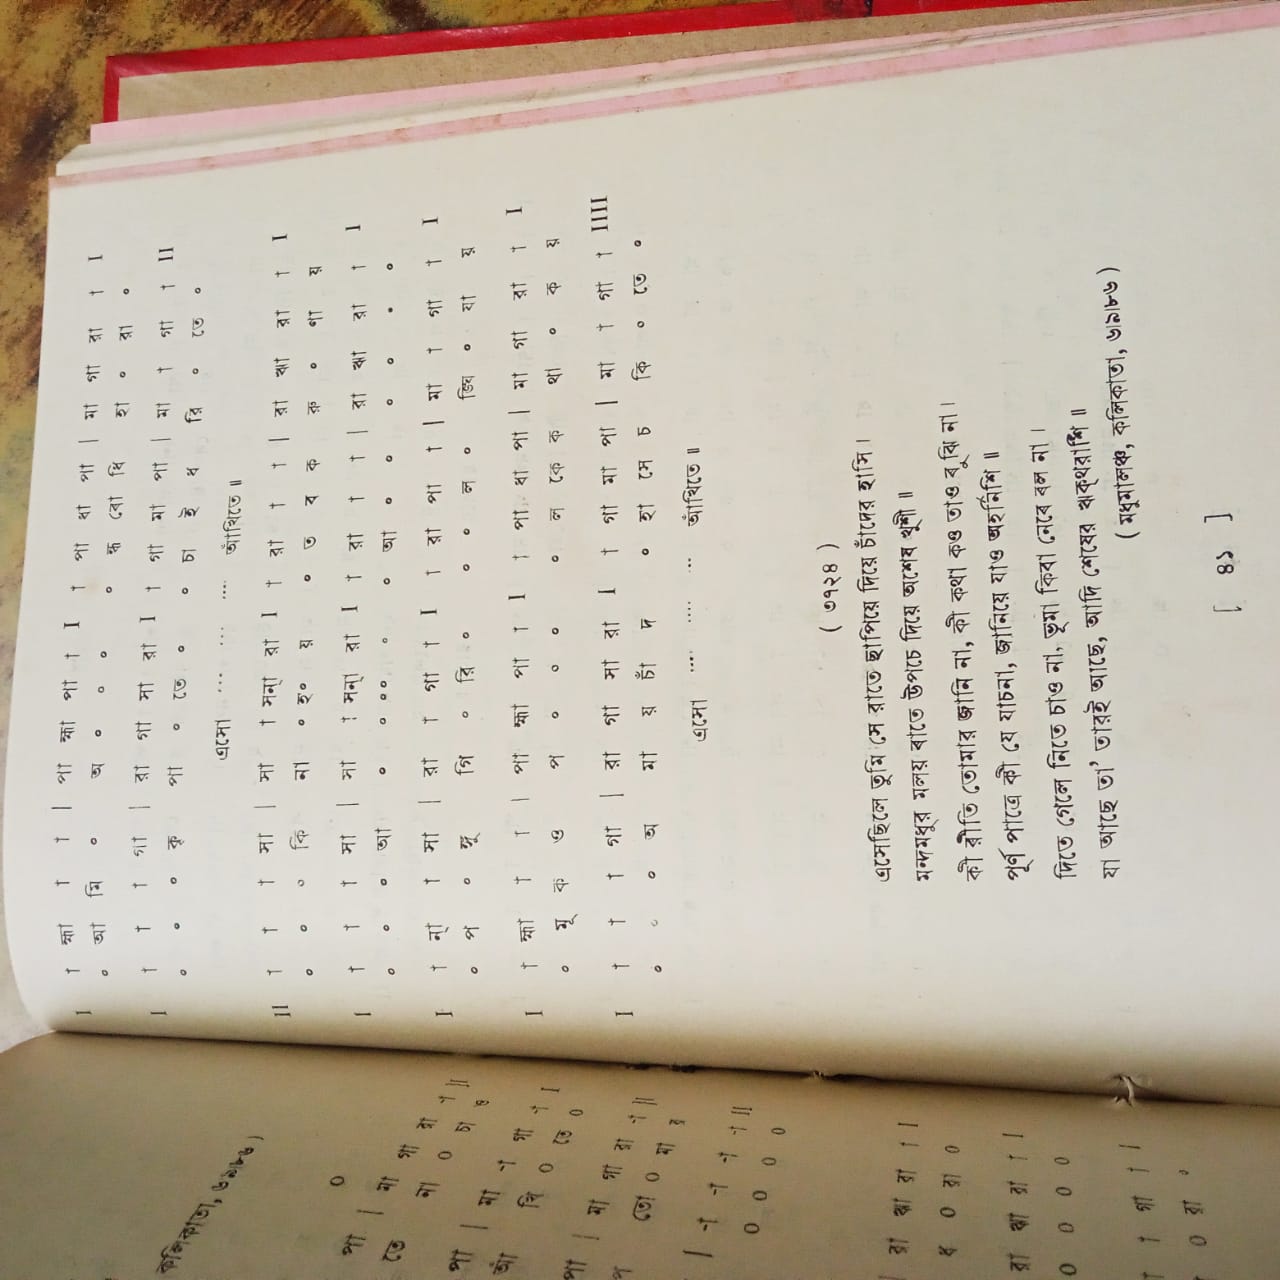 I † হ্মা † † | পা হ্মা পা † I † পা ধা পা | মা গা রা † I
০ আ মি ০ অ ০ ০ ০ ০ ন্ধ বো ধি হা ০ রা ০
I † † † গা | রা গা মা রা I † গা মা পা | মা † গা † II
০ ০ ০ কৃ পা ০ তে ০ ০ চা ই ধ রি ০ তে ০
এসো .... ... .... আঁখিতে ॥
II † † † সা | সা † সন্‌া রা I † রা † † | রা ঋা রা † I
০ ০ ০ কি না ০ হ০ য় ০ ত ব ক রু ০ ণা য়
I † † † সা | সা † সন্‌া রা I † রা † † | রা ঋা রা † I
০ ০ ০ আ ০ ০ ০০ ০ ০ আ ০ ০ ০ ০ ০ ০
I † ন্‌া † সা | রা † গা † I † রা পা † | মা † গা † I
০ প ০ ঙ্গু গি ০ রি ০ ০ ০ ল ০ ঙ্ঘি ০ যা য়
I † হ্মা † † | পা হ্মা পা † I † পা ধা পা | মা গা রা † I
০ মূ ক ও প ০ ০ ০ ০ ল কে ক থা ০ ক য়
I † † † গা | রা গা মা রা I † গা মা পা | মা † গা † IIII
০ ০ ০ অ মা য় চাঁ দ ০ হা সে চ কি ০ তে ০
এসো .... .... ... আঁখিতে ॥
( ৩৭২৪ )
এসেছিলে তুমি সে রাতে ছাপিয়ে দিয়ে চাঁদের হাসি।
মন্দমধুর মলয় বাতে উপচে দিয়ে অশেষ খুশী ॥
কী রীতি তোমার জানি না, কী কথা কও তাও বুঝি না।
পূর্ণ পাত্রে কী যে যাচনা, জানিয়ে যাও অহর্নিশি ॥
দিতে গেলে নিতে চাও না, ভূমা কিবা নেবে বল না।
যা আছে তা' তারই আছে, আদি শেষের ঋক্‌থরাশি ॥
( মধুমালঞ্চ, কলিকাতা, ৬।৯।৮৬ )
[ ৪১ ]
কলিকাতা, ৬।৯।৮৬ )